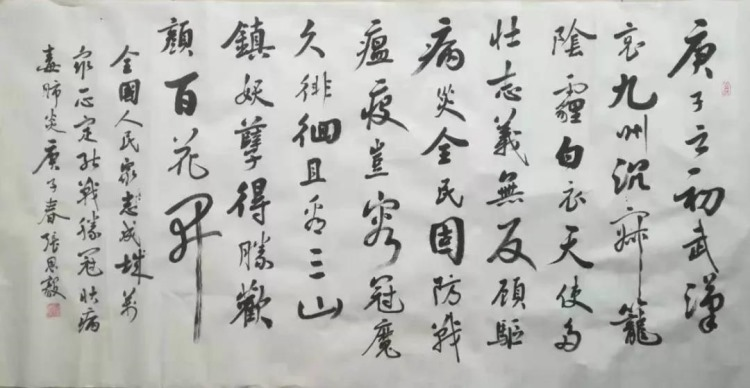 庚子之初武漢
哀九州沉寂籠
陰霾白衣天使多
壯志義無反顧驅
病炎全民固防戰
瘟疫豈容冠魔
久徘徊且看三山
鎮妖孽得勝歡
顏百花開
全國人民衆志成城萬
衆一心定能戰勝冠狀病
毒肺炎庚子春張思毅